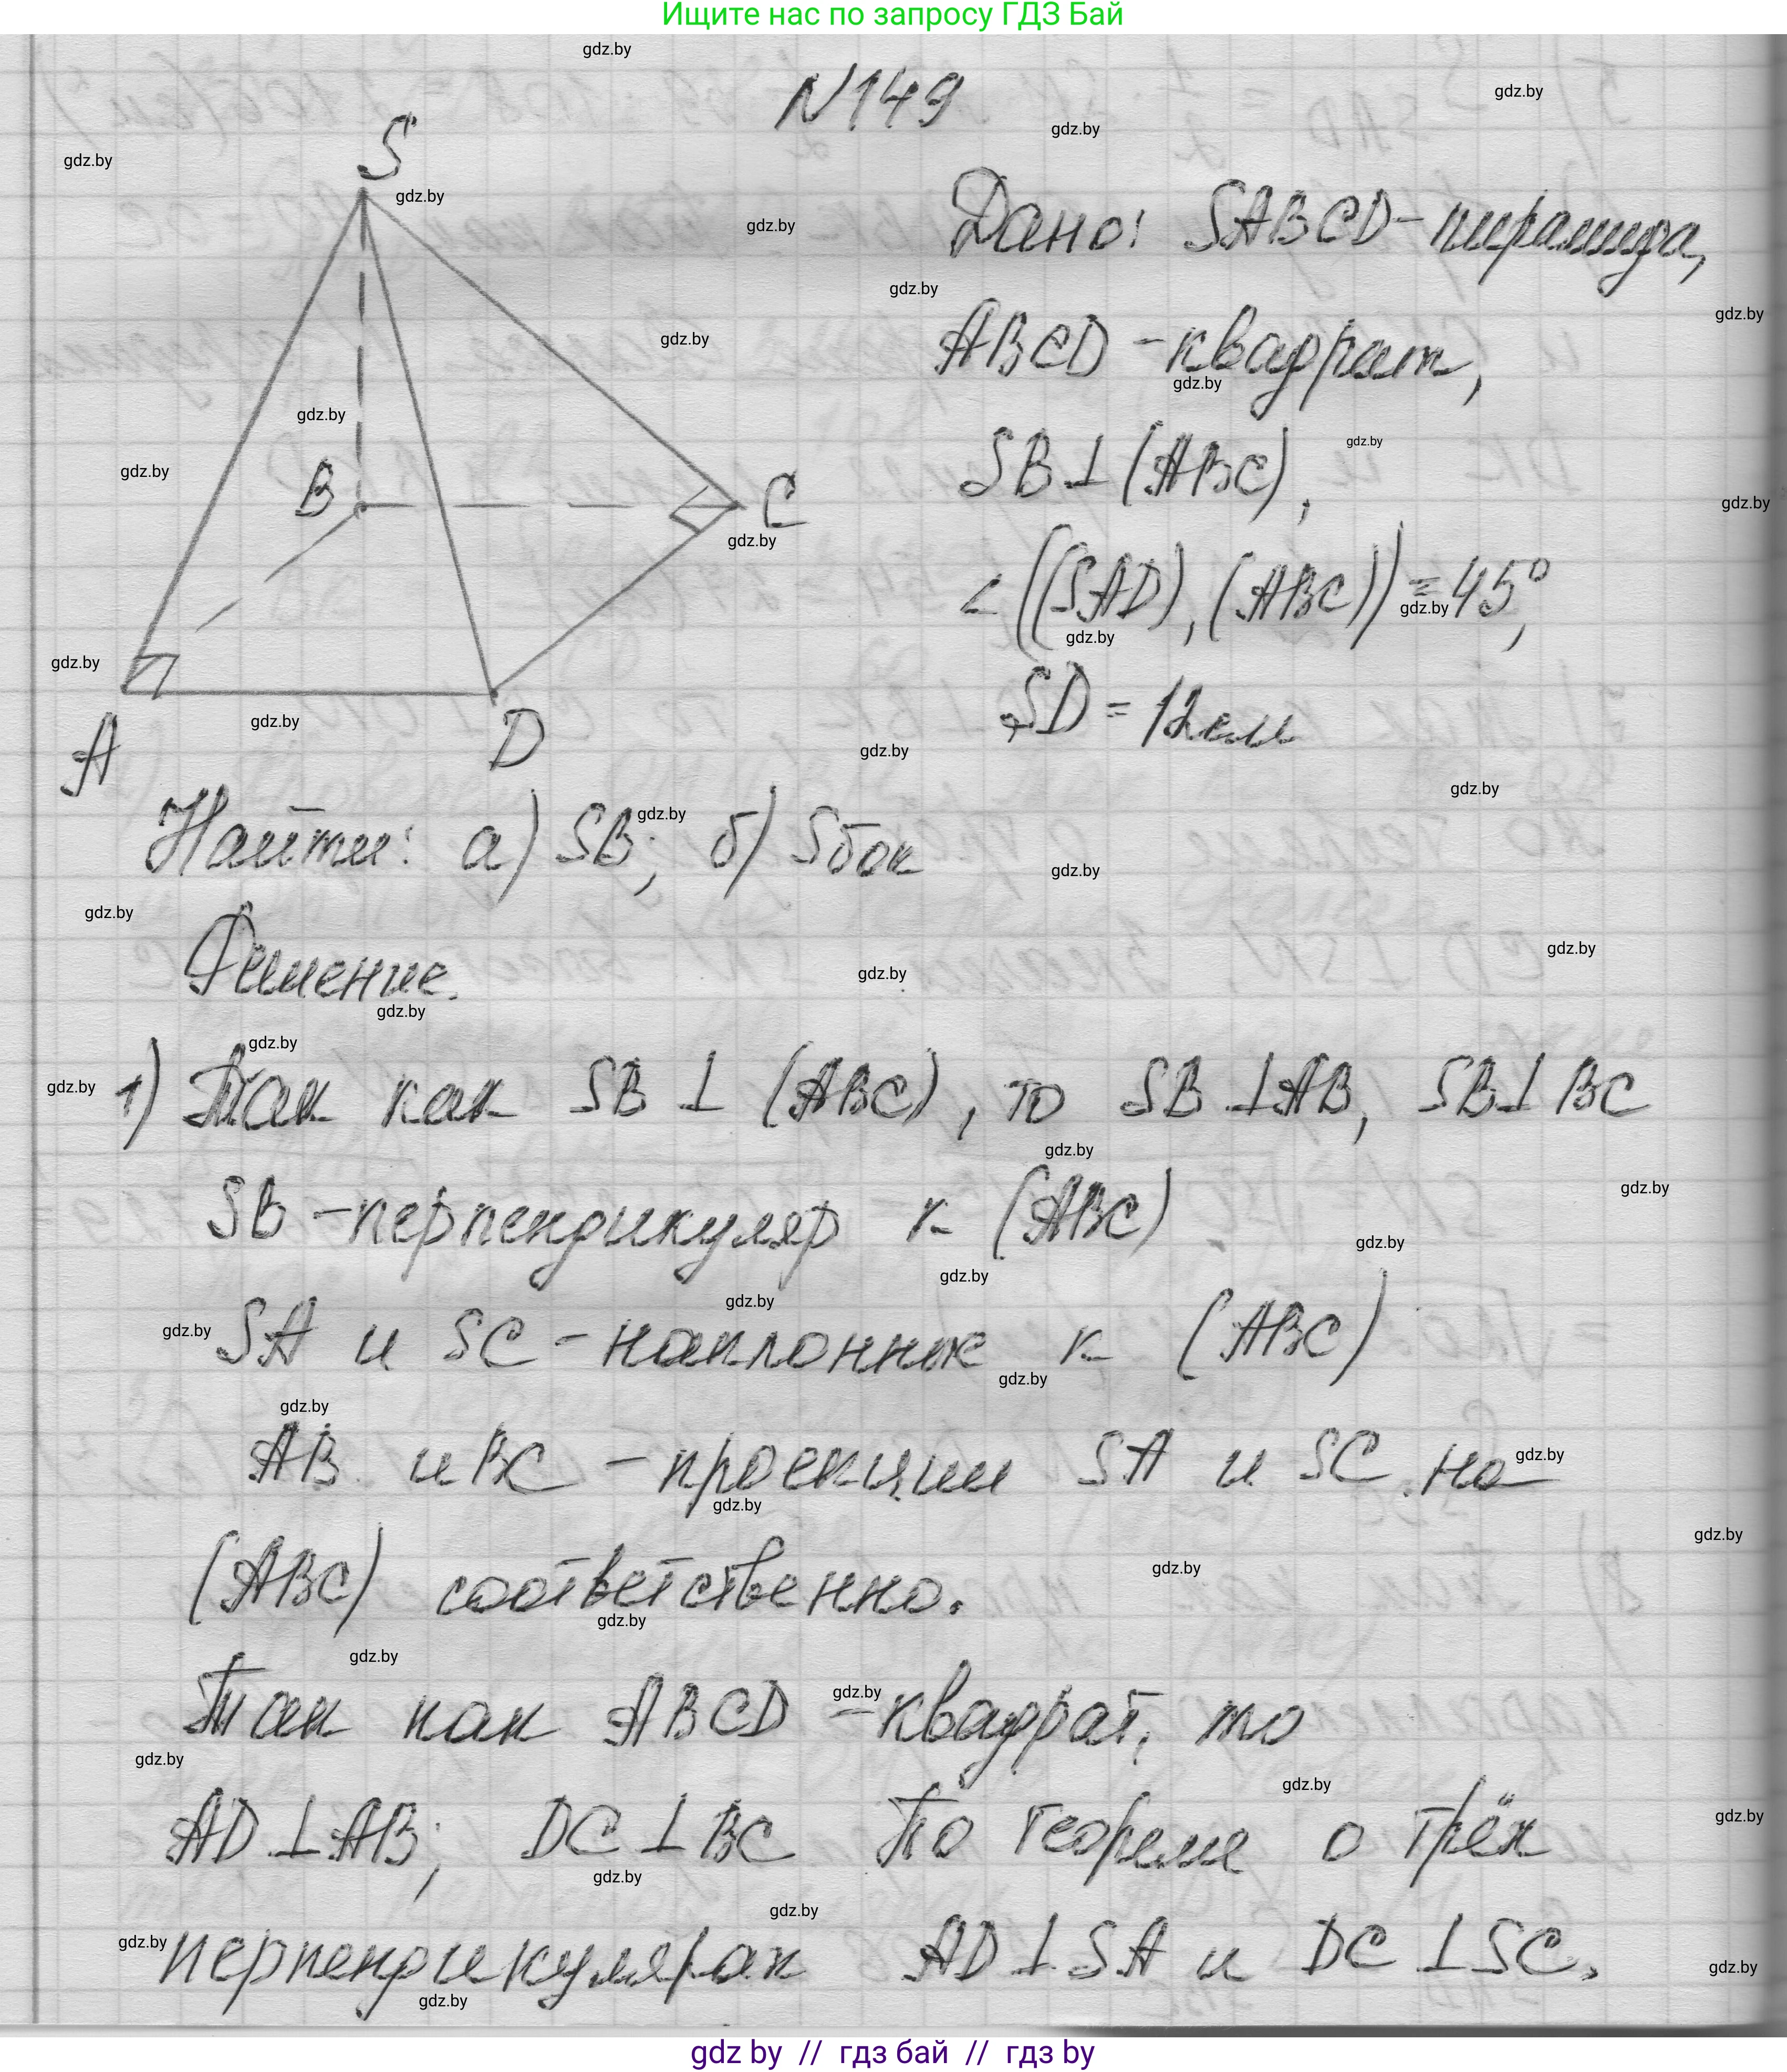 Ищите нас по запросу ГДЗ Бай
N149
S
B
C
A
D
Дано: SABCD-пирамида,
ABCD -квадрат,
SB⊥(ABC),
∠((SAD),(ABC))=45°,
SD=12см
Найти: а) SB; б) Sбок
Решение.
1) Так как SB ⊥ (ABC), то SB⊥AB, SB⊥BC
SB -перпендикуляр к (ABC)
SA и SC -наклонные к (ABC)
AB и BC -проекции SA и SC на
(ABC) соответственно.
Так как ABCD -квадрат, то
AD⊥AB; DC⊥BC По теореме о трёх
перпендикулярах AD⊥SA и DC⊥SC.
gdz by // гдз бай // гдз by